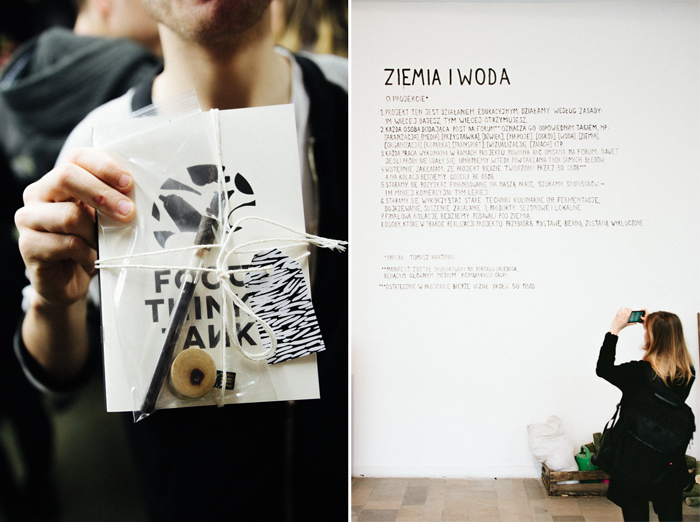 FOOD
THINK
TANK
ZIEMIA I WODA
O PROJEKCIE*
1. PROJEKT TEN JEST DZIAŁANIEM EDUKACYJNYM. DZIAŁAMY WEDŁUG ZASADY:
IM WIĘCEJ DAJESZ, TYM WIĘCEJ OTRZYMUJESZ.
2. KAŻDA OSOBA DODAJĄCA POST NA FORUM** OZNACZA GO ODPOWIEDNIM TAGIEM, NP.:
[ARANŻACJA] [MEDIA] [PRZYSTAWKA] [DŹWIĘK] [NAPOJE] [OGRÓD] [WODA] [ZIEMIA]
[ORGANIZACJA] [TRANSPORT] [WIZUALIZACJE] [ZAPACH] ITP.
3. KAŻDA PRACA WYKONANA W RAMACH PROJEKTU POWINNA BYĆ OPISANA NA FORUM, NAWET
JEŚLI PRÓBY NIE UDAŁY SIĘ. UNIKNIEMY W TEN SPOSÓB POWTARZANIA TYCH SAMYCH BŁĘDÓW.
4. WSTĘPNIE ZAKŁADAM, ŻE PROJEKT BĘDZIE TWORZONY PRZEZ 50 OSÓB***,
A NA KOLACJI BĘDZIEMY GOŚCILI 80 OSÓB.
5. STARAMY SIĘ POZYSKAĆ FINANSOWANIE NA NASZĄ PRACĘ, SZUKAMY SPONSORÓW –
IM MNIEJ KOMERCYJNI TYM LEPIEJ.
6. STARAMY SIĘ WYKORZYSTAĆ STARE TECHNIKI KULINARNE (NP. FERMENTACJE,
DOJRZEWANIE, SUSZENIE, ZASALANIE...), PRODUKTY SEZONOWE I LOKALNE.
7. FINAŁOWĄ KOLACJĘ BĘDZIEMY PODAWALI POD ZIEMIĄ.
8. OSOBY, KTÓRE W TRAKCIE REALIZACJI PROJEKTU PRZYBIORĄ POSTAWĘ BIERNĄ, ZOSTANĄ WYKLUCZONE.
*TOMASZ HARTMAN
**MANIFEST ZOSTAŁ OPUBLIKOWANY NA PORTALU FACEBOOK,
BĘDĄCYM GŁÓWNYM MEDIUM KOMUNIKACJI GRUPY
***OSTATECZNIE W PROJEKCIE BIERZE UDZIAŁ OKOŁO 50 OSÓB